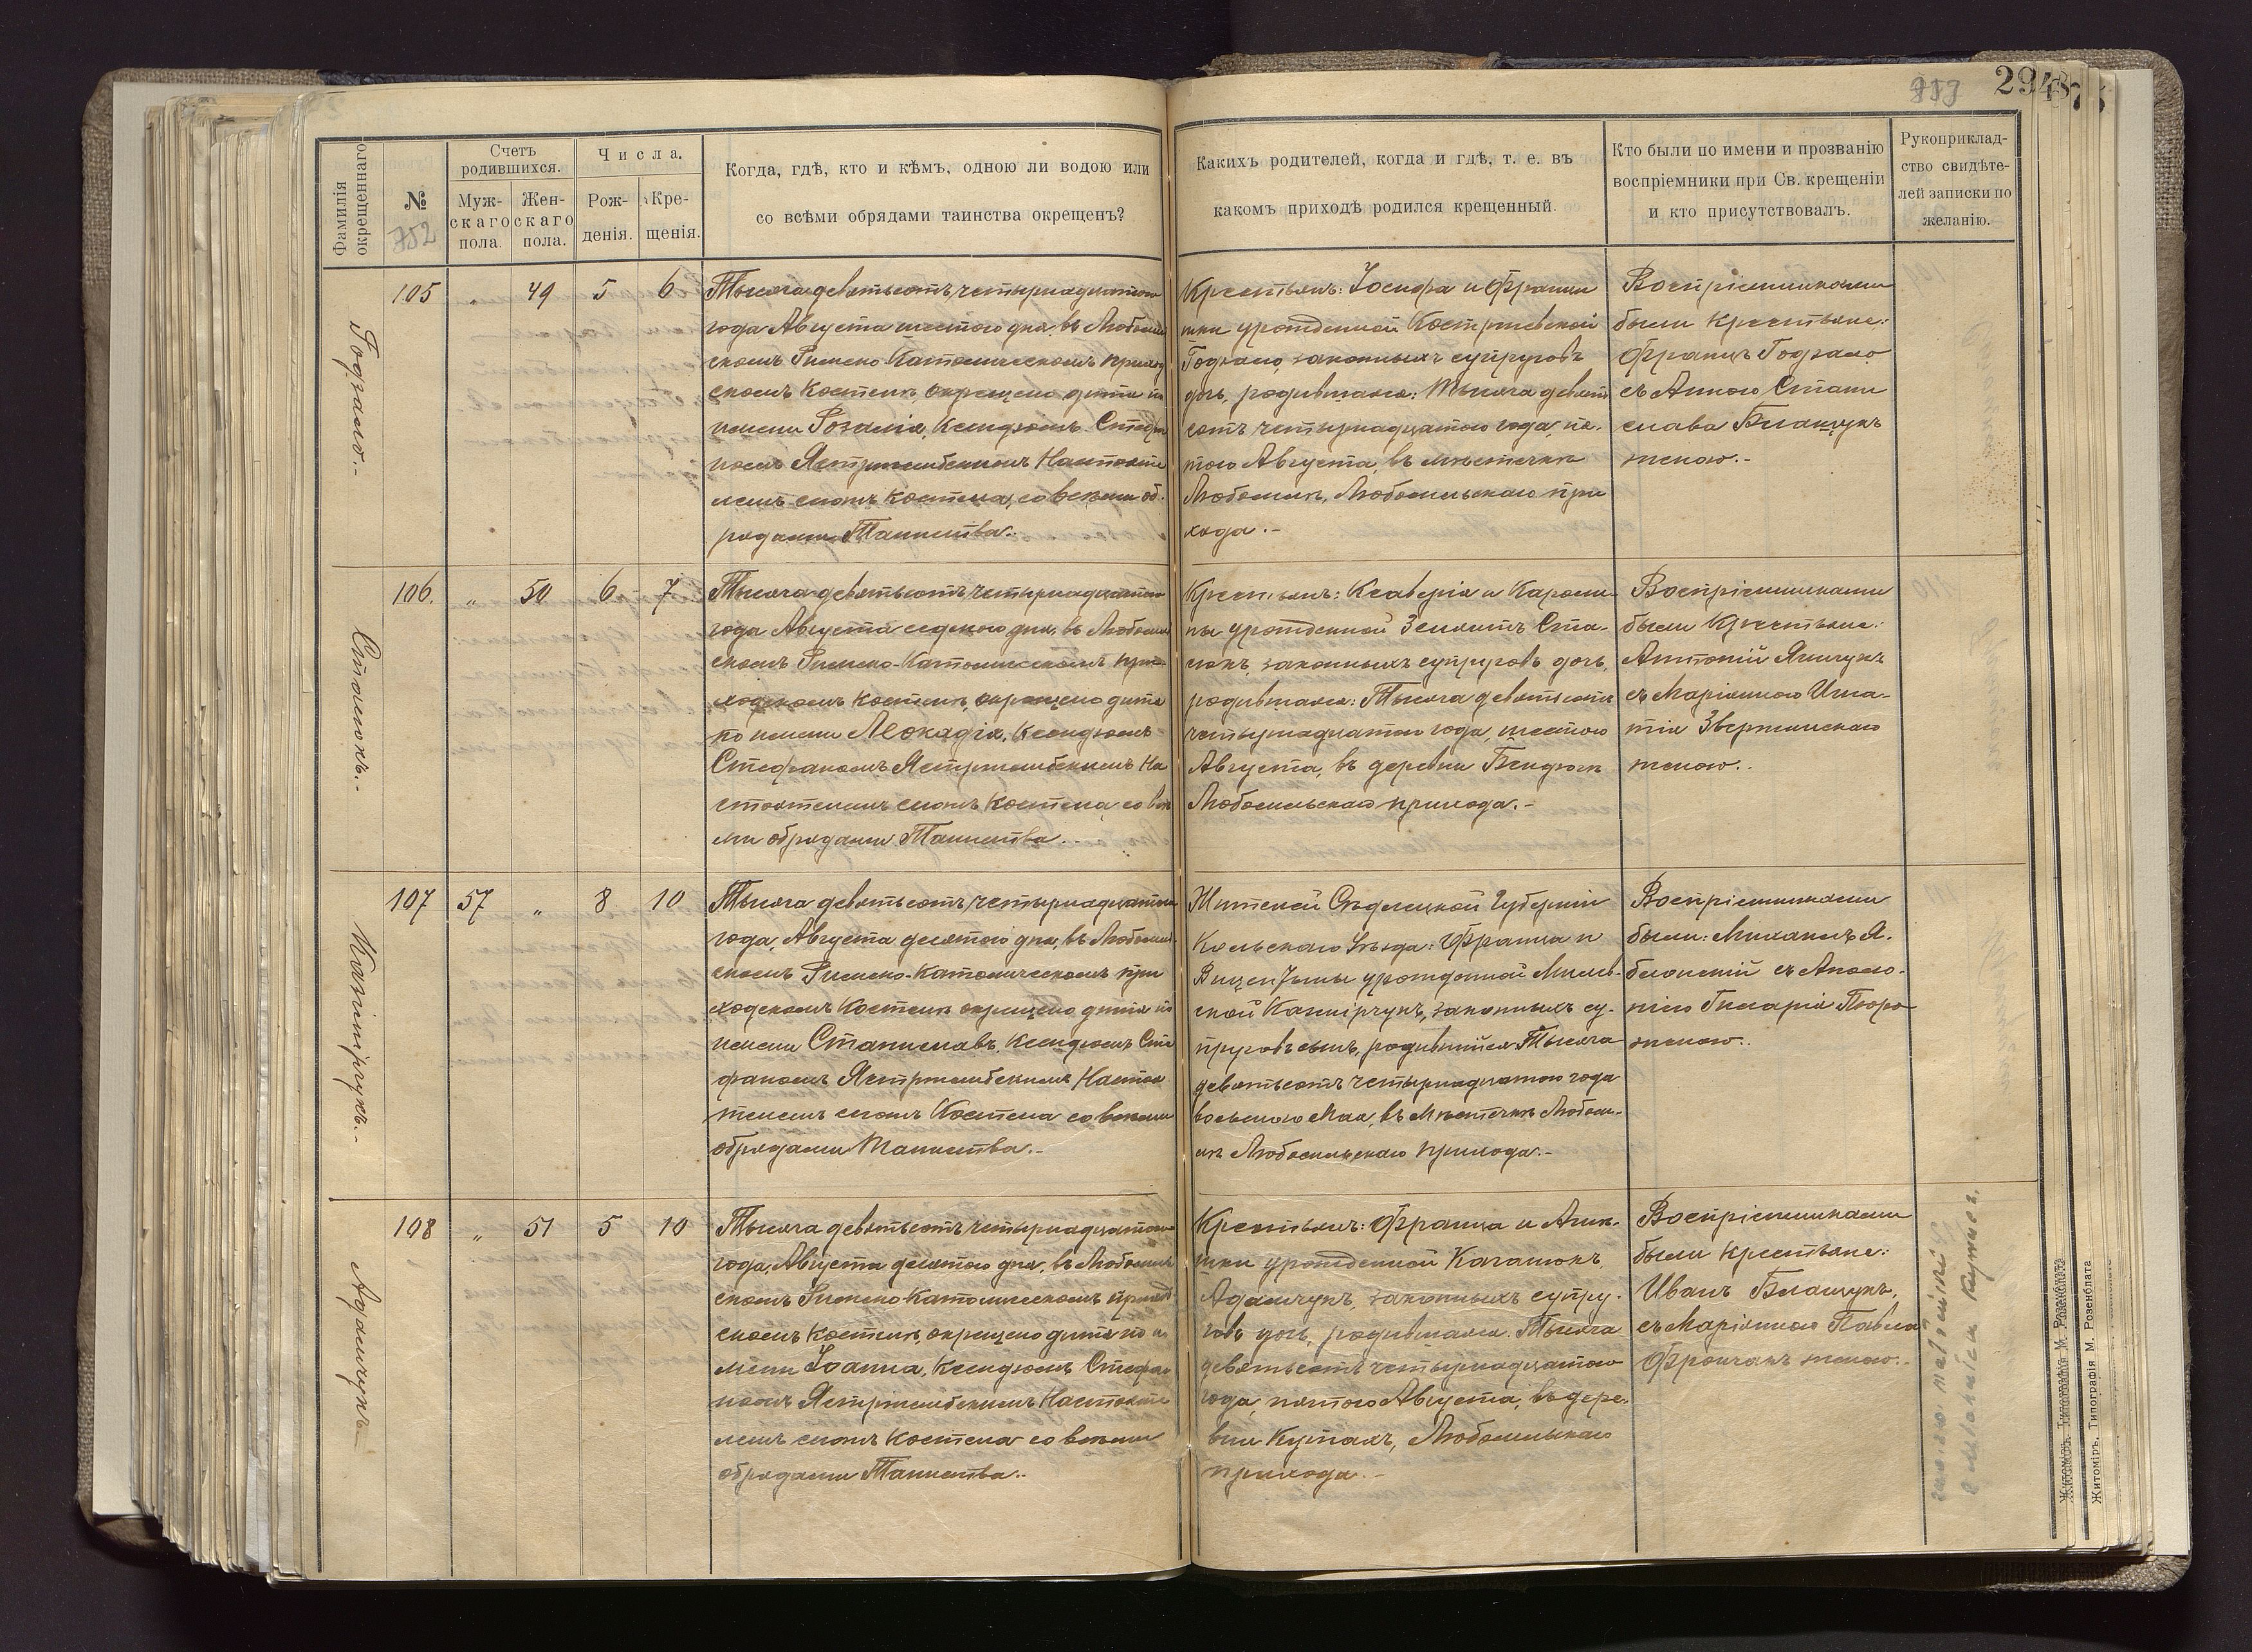 753
29487
Фамилія окрещеннаго
№
752
Счетъ родившихся.
Муж-
скаго
пола.
Жен-
скаго
пола.
Числа.
Рож-
денія.
Кре-
щенія.
Когда, гдѣ, кто и кѣмъ, одною ли водою или
со всѣми обрядами таинства окрещенъ?
Какихъ родителей, когда и гдѣ, т. е. въ
какомъ приходѣ родился крещенный.
Кто были по имени и прозванію
воспріемники при Св. крещеніи
и кто присутствовалъ.
Рукоприклад-
ство свидѣте-
лей записки по
желанію.
Годзало.
105 „ 49 5 6
Тысяча девятьсотъ четырнадцатого
года Августа шестого дня въ Любомль
скомъ Римско-Католическомъ приход
скомъ костелѣ, окрещено дитя по
имени Розалія, Ксендзомъ Стефа
номъ Ястржембскимъ Настояте
лемъ сиотъ костела, со всѣми об-
рядами Таинства.-
Крестьянъ: Іосифа и Франци
шки урожденной Костржевской
Годзало, законныхъ супруговъ
дочь, родившаяся: Тысяча девять
сотъ четырнадцатого года, пя-
того Августа, въ мѣстечкѣ
Любомлѣ, Любомльскаго при
хода.-
Воспріемниками
были Крестьяне:
Францъ Годзало
съ Анною Стани
слава Блащукъ
женою.-
Стасюкъ.-
106. „ 50 6 7
Тысяча девятьсотъ четырнадцатого
года Августа седмого дня, въ Любомль
скомъ Римско-Католическомъ при-
ходскомъ костелѣ, окрещено дитя
по имени Леокадія, Ксендзомъ
Стефаномъ Ястржембскимъ На
стоятелемъ сиотъ Костела, со всѣ
ми обрядами Таинства.-
Крестьянъ: Ксаверія и Кароли-
ны урожденной Земянъ Ста-
сюкъ, законныхъ супруговъ дочь,
родившаяся: Тысяча девятьсотъ
четырнадцатого года, шестого
Августа, въ деревни Бендюгѣ
Любомльскаго прихода.-
Воспріемниками
были Крестьяне:
Антоній Ящукъ
съ Маріянною Игна-
тія Звержинскаго
женою.-
Казмірчукъ.-
107 57 „ 8 10
Тысяча девятьсотъ четырнадцатого
года, Августа десятого дня, въ Любомль-
скомъ Римско-Католическомъ при
ходскомъ Костелѣ окрещено дитя по
имени Станиславъ, Ксендзомъ Сте
фаномъ Ястржембскимъ Настоя
телемъ сиотъ Костела со всѣми
обрядами Таинства.-
Жителей Сѣдлецкой Губерніи
Уѣзда: Франца и
урожденной
Казмірчукъ, законныхъ су-
пруговъ сынъ, родившійся Тысяча
девятьсотъ четырнадцатого года
восьмого Мая, въ Мѣстечкѣ Любом-
лѣ Любомльскаго прихода.-
Воспріемниками
были: Михаилъ Я-
блонскій съ Аполо-
ніею Гиларія Тюро
женою.-
Адамчукъ.-
108 „ 51 5 10
Тысяча девятьсотъ четырнадцатого
года, Августа десятого дня, въ Любомль
скомъ Римско Католическомъ приход
скомъ Костелѣ, окрещено дитя по и
мени Іоанна, Ксендзомъ Стефа
номъ Ястржембскимъ Настояте
лемъ сиотъ костела со всѣми
обрядами Таинства.-
Крестьянъ: Франца и Агнѣ-
шки урожденной Качанюкъ
Адамчукъ, законныхъ супру-
говъ дочь, родившаяся: Тысяча
девятьсотъ четырнадцатого
года, пятого Августа, въ дере-
вни Кутахъ, Любомльскаго
прихода.-
Воспріемниками
были крестьяне:
Иванъ Блащукъ,
съ Маріянною Павла
женою.-
Житоміръ, Типографія М. Розенблата
Житоміръ, Типографія М. Розенблата